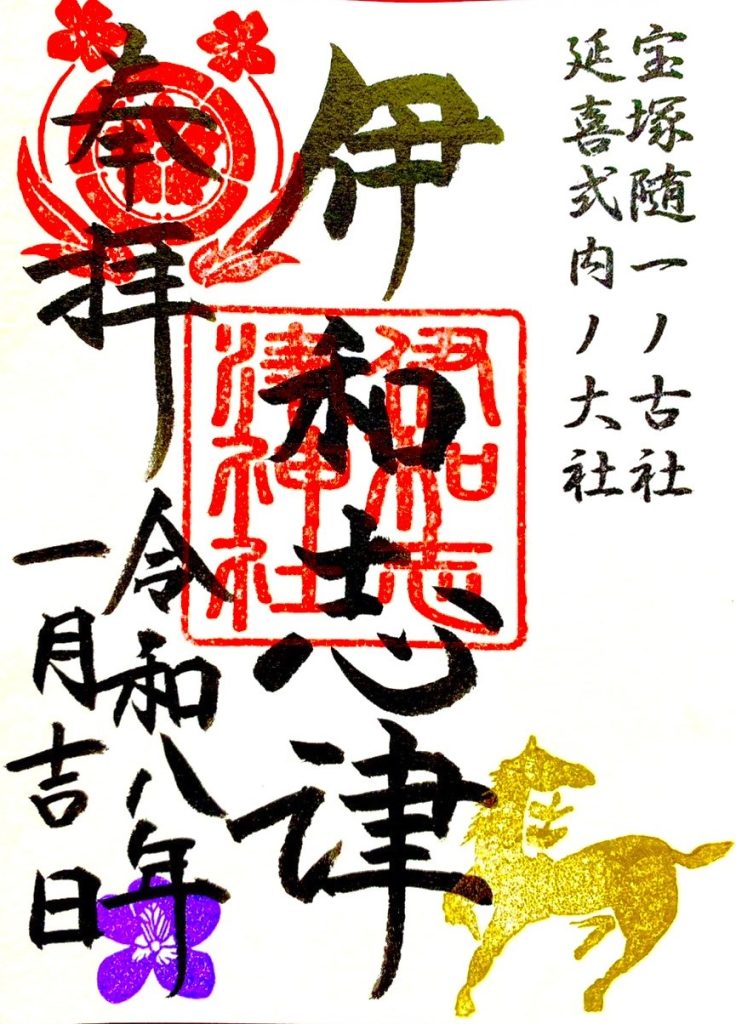 宝塚随一ノ古社
延喜式内ノ大社
伊和志津
伊和志
津神社
奉拝
令和八年
一月吉日